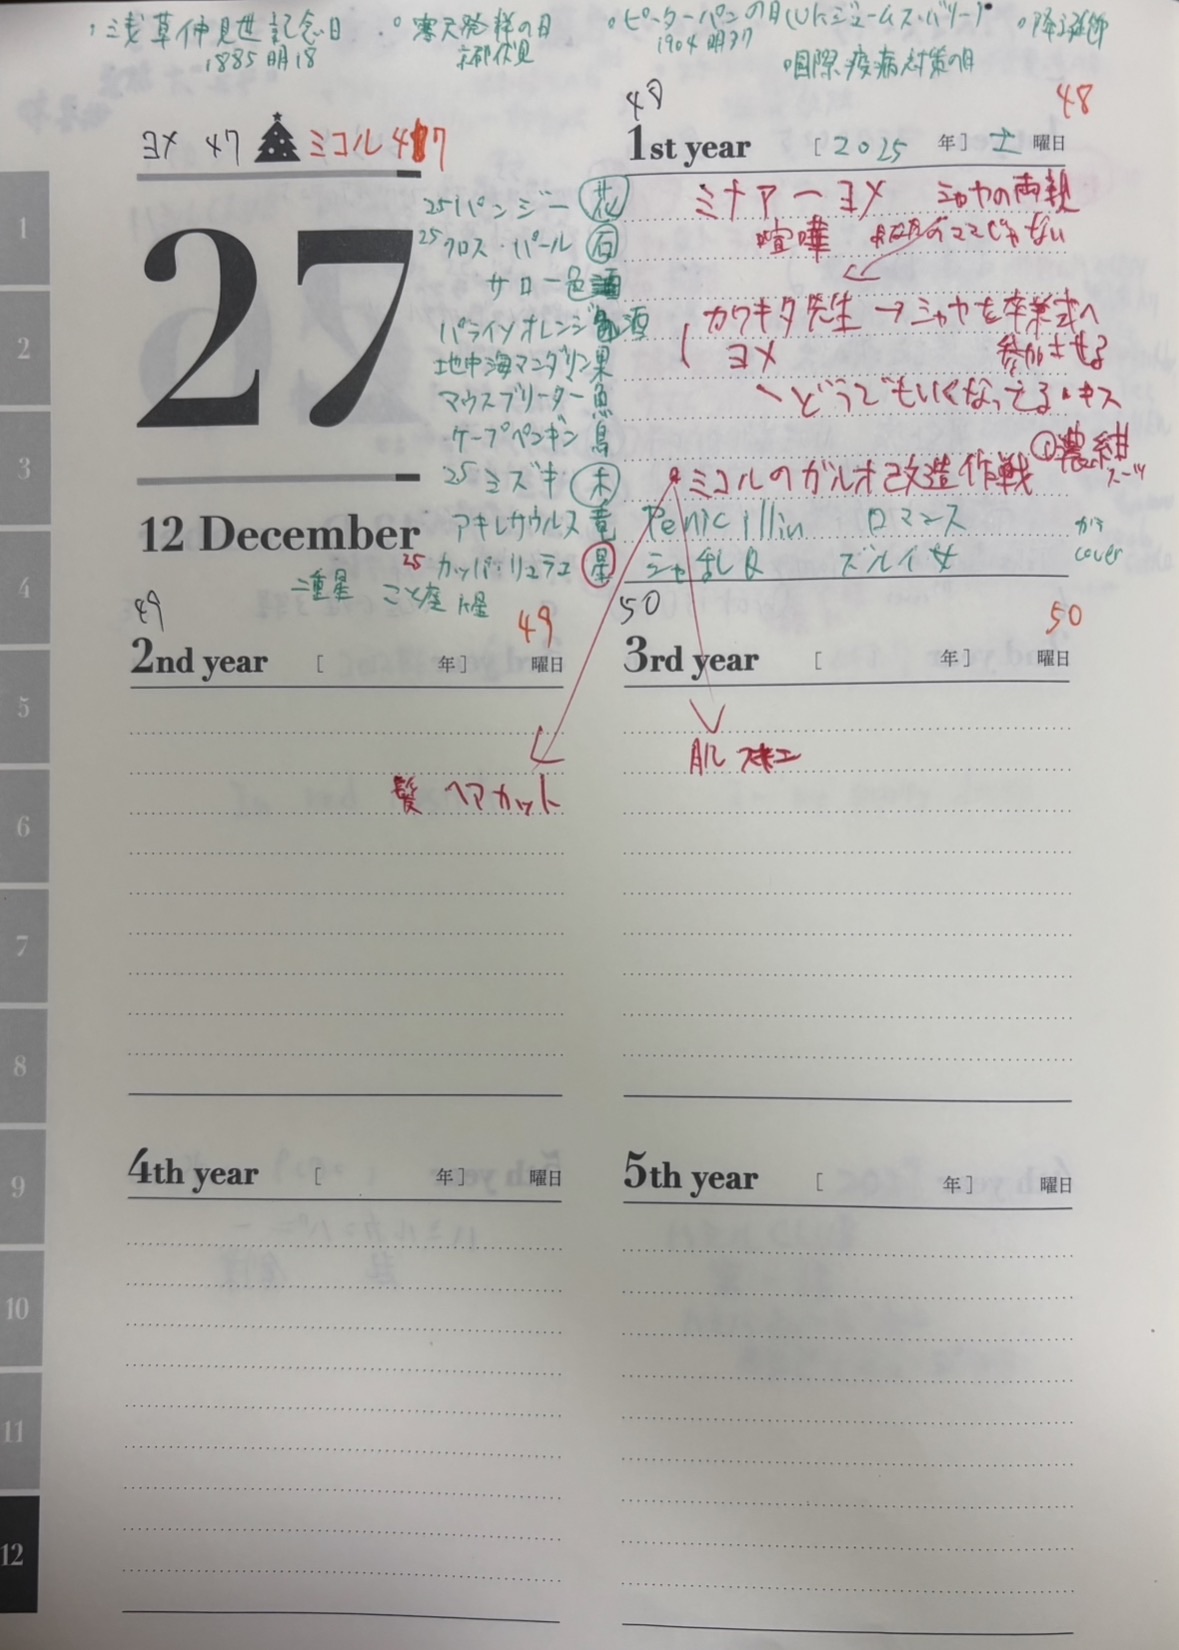 ・浅草仲見世記念日
1885 明18
○寒天発祥の日
京都伏見
○ピーターパンの日(UKジェームス・バリー)
1904 明37
○国際疫病対策の日
○降誕節
ヨメ 47 ミコル 47
27
12 December
25 パンジー 花
25 クロス・パール 石
サロー 色
パライソオレンジ 酒
地中海マンダリン 果
マウスブリーダー 魚
ケープペンギン 鳥
25 ミズキ 木
アキレサウルス 竜
25 カッパ・リュラエ 星
二重星 こと座 K星
48 48
1st year [ 2025 年] 土 曜日
ミナァーヨメ シャヤの両親
喧嘩 ママじゃない
カワキタ先生 → シャヤを卒業式へ
ヨメ 参加させる
どうでもいくなってる・キス
ミコルのガルオ改造作戦 ①濃紺
スーツ
Penicillin ロマンス
シャ乱Q ズルイ女
がる
cover
49 49
2nd year [ 年] 曜日
髪 ヘアカット
50 50
3rd year [ 年] 曜日
肌
4th year [ 年] 曜日
5th year [ 年] 曜日
1
2
3
4
5
6
7
8
9
10
11
12